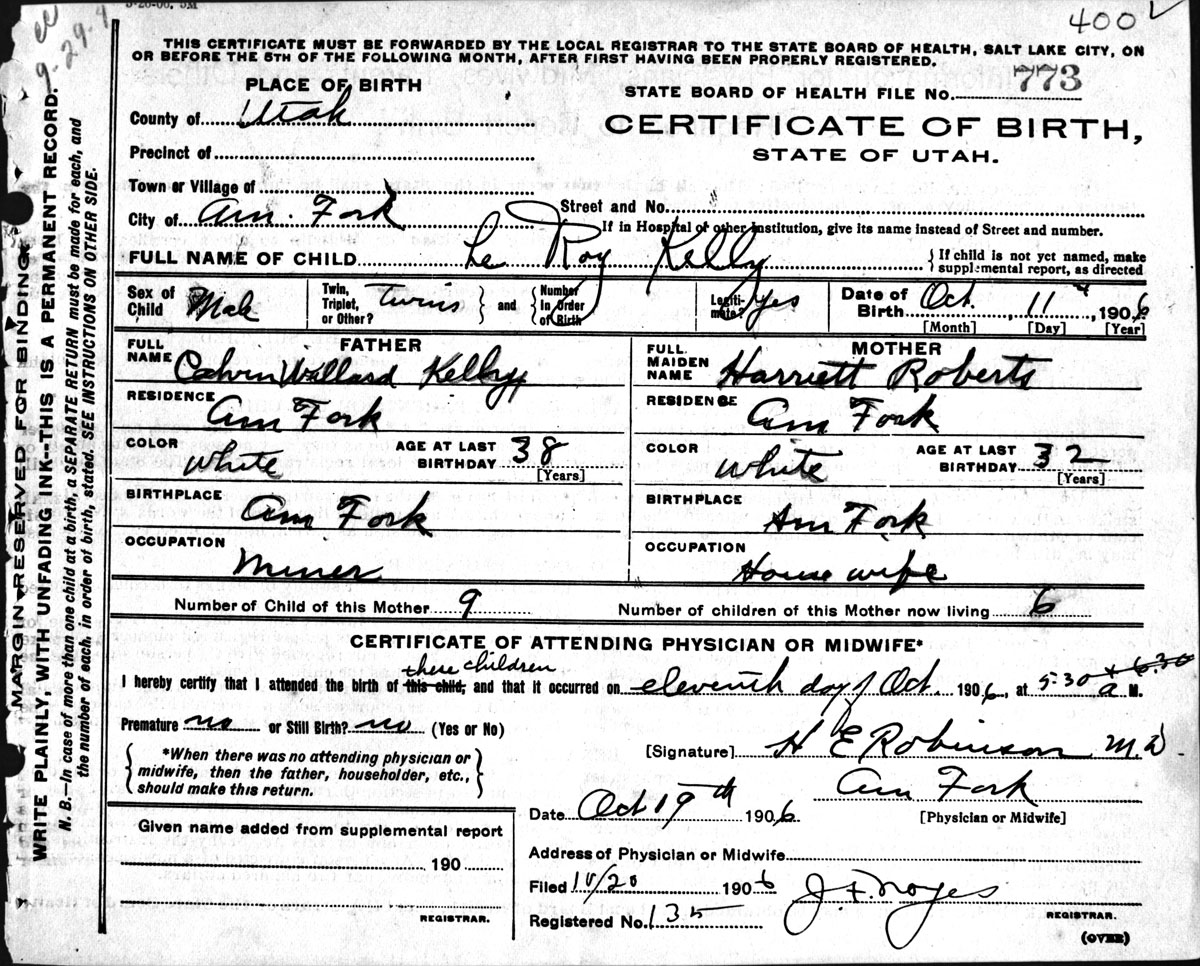 3-28-06. 5M
400
THIS CERTIFICATE MUST BE FORWARDED BY THE LOCAL REGISTRAR TO THE STATE BOARD OF HEALTH, SALT LAKE CITY, ON
OR BEFORE THE 5TH OF THE FOLLOWING MONTH, AFTER FIRST HAVING BEEN PROPERLY REGISTERED.
PLACE OF BIRTH
STATE BOARD OF HEALTH FILE No. 773
County of Utah
CERTIFICATE OF BIRTH,
STATE OF UTAH.
Precinct of
Town or Village of
Street and No.
City of Am. Fork
If in Hospital or other Institution, give its name instead of Street and number.
FULL NAME OF CHILD Le Roy Kelly
{ If child is not yet named, make supplemental report, as directed
Sex of Child Male
Twin, Triplet, or Other? Twins
and
Number In Order of Birth
Legitimate? Yes
Date of Birth Oct. 11th, 1906
[Month] [Day] [Year]
FATHER
FULL NAME Calvin Willard Kelly
RESIDENCE Am Fork
COLOR White
AGE AT LAST BIRTHDAY 38
[Years]
BIRTHPLACE Am Fork
OCCUPATION Miner
MOTHER
FULL MAIDEN NAME Harriett Roberts
RESIDENCE Am Fork
COLOR White
AGE AT LAST BIRTHDAY 32
[Years]
BIRTHPLACE Am Fork
OCCUPATION House wife
Number of Child of this Mother 9
Number of children of this Mother now living 6
CERTIFICATE OF ATTENDING PHYSICIAN OR MIDWIFE*
these children
I hereby certify that I attended the birth of this child, and that it occurred on eleventh day of Oct. 1906, at 5-30 + 6.30 a M.
Premature no or Still Birth? no (Yes or No)
*When there was no attending physician or
midwife, then the father, householder, etc.,
should make this return.
[Signature] H E Robinson M.D
Am Fork
[Physician or Midwife]
Date Oct 19th 1906
Given name added from supplemental report
190
REGISTRAR.
Address of Physician or Midwife
Filed 10/20 1906
J. F. Noyes
REGISTRAR.
Registered No. 135
(OVER)
MARGIN RESERVED FOR BINDING
WRITE PLAINLY, WITH UNFADING INK--THIS IS A PERMANENT RECORD.
N. B.—In case of more than one child at a birth, a SEPARATE RETURN must be made for each, and
the number of each, in order of birth, stated. SEE INSTRUCTIONS ON OTHER SIDE.